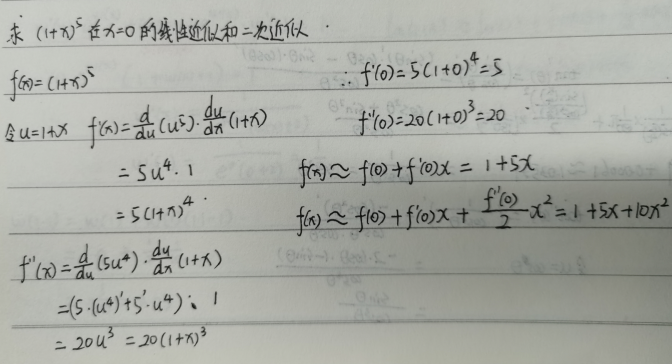 求 (1+x)⁵ 在x=0 的线性近似和二次近似.
f(x)=(1+x)⁵
令u=1+x f'(x)=d/du(u⁵)·du/dx(1+x)
=5u⁴·1
=5(1+x)⁴
f''(x)=d/du(5u⁴)·du/dx(1+x)
=(5·(u⁴)'+5'·u⁴)·1
=20u³=20(1+x)³
∴ f'(0)=5(1+0)⁴=5
f''(0)=20(1+0)³=20
f(x)≈f(0)+f'(0)x=1+5x
f(x)≈f(0)+f'(0)x+f''(0)/2 x²=1+5x+10x²